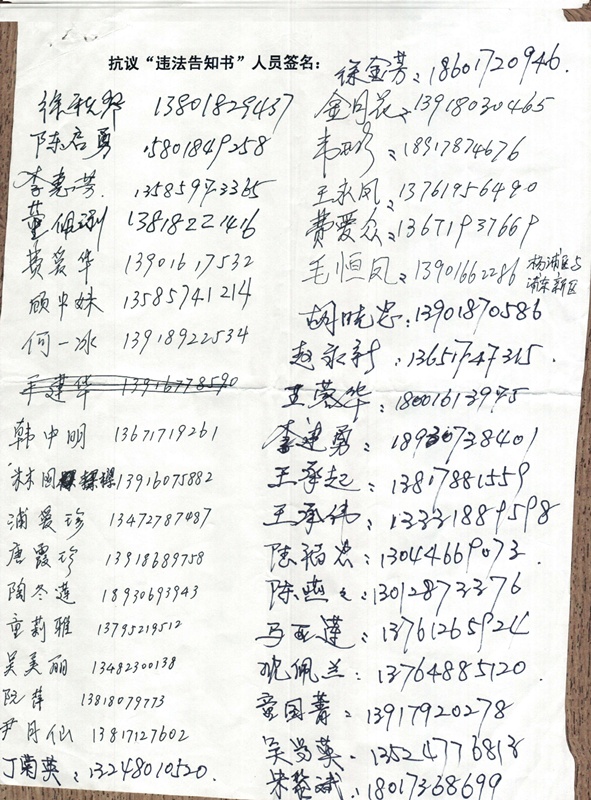 抗议“违法告知书”人员签名：
徐 13801829437
陈启勇 15801849258
李惠芳 13585973365
董佩 13818221416
费爱华 13901617532
顾中妹 13585741214
何一冰 13918922534
华 13916778590
韩中明 13671719261
林国 13916075882
浦爱珍 13472787487
唐霞珍 13918689758
陶冬莲 18930693943
童莉雅 13795219512
吴美丽 13482300138
阮萍 13818079773
尹月仙 13817127602
丁菊英：13248010520.
徐金芳：18601720946.
金月花：13918030465
韦 ：18917874676
王永凤：13761956490
费爱众：13671937669
毛恒凤：13901662286 杨浦区与
浦东新区
胡晓忠：13901870586
赵永新：13651747315.
王 华：18001613975
李建勇：18930738401
王承起：13817881559
王承伟：13331889598
陆福忠：13044669073.
陈燕：13012873376
马 莲：13761265924
沈佩兰：13764885120.
童国菁：13917920278
吴 英：13524776813
宋 斌：18017368699